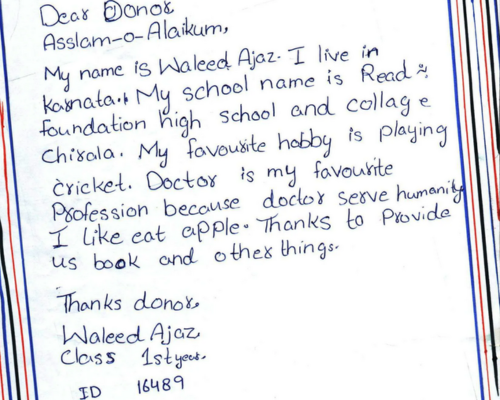 Dear Donor
Asslam-o-Alaikum,
My name is Waleed Ajaz. I live in
My school name is Read
foundation high school and collage
Chirala. My favourite hobby is playing
cricket. Doctor is my favourite
Profession because doctor serve humanity
I like eat apple. Thanks to Provide
us book and other things.
Thanks donor.
Waleed Ajaz
Class 1st year.
ID 16489